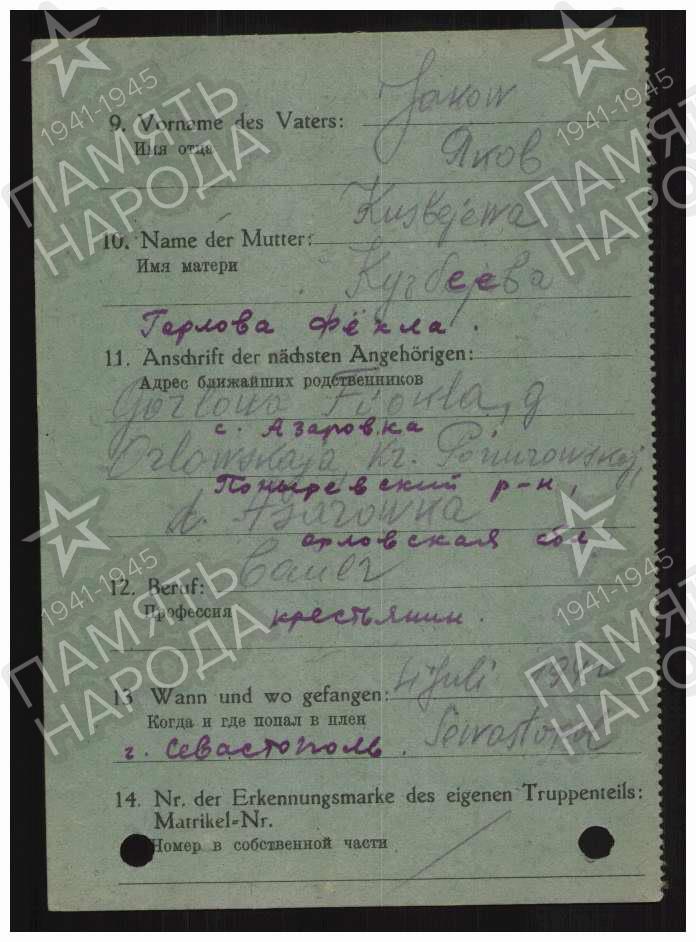 9. Vorname des Vaters: Jakow
Имя отца
Яков
Kusbejewa
10. Name der Mutter:
Имя матери
Кузбеева
Герлова Фёкла.
11. Anschrift der nächsten Angehörigen:
Адрес ближайших родственников
Gorlowa Fjokla, g
с. Азаровка
Orlowskaja, Kr.
Поныревский р-н,
d. Asarowka
орловская обл.
12. Beruf: Bauer
Профессия крестьянин.
13. Wann und wo gefangen: 4 Juli 1942
Когда и где попал в плен
г. Севастополь. Sewastopol
14. Nr. der Erkennungsmarke des eigenen Truppenteils:
Matrikel-Nr.
Номер в собственной части
1941-1945
ПАМЯТЬ
НАРОДА
1941-1945
ПАМЯТЬ
НАРОДА
1941-1945
ПАМЯТЬ
НАРОДА
1941-1945
ПАМЯТЬ
НАРОДА